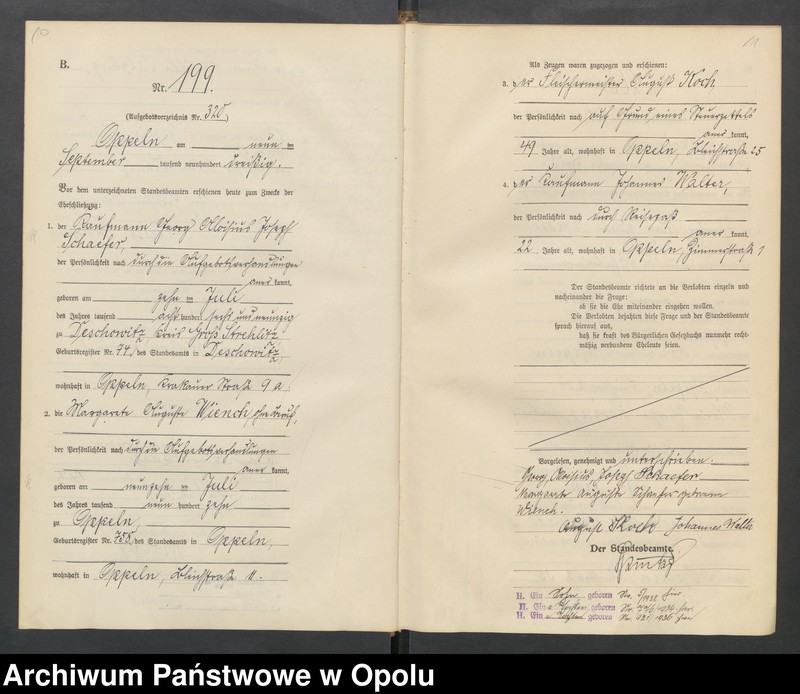 10
B.
Nr. 199.
(Aufgebotsverzeichnis Nr. 320)
Oppeln am neun ten
September tausend neunhundert dreißig.
Vor dem unterzeichneten Standesbeamten erschienen heute zum Zwecke der
Eheschließung:
1. der Kaufmann Georg Aloisius Joseph
Schaefer,
der Persönlichkeit nach durch die Aufgebotsverhandlungen
aner kannt,
geboren am zehn ten Juli
des Jahres tausend acht hundert sechs und neunzig
zu Deschowitz, Kreis Groß Strehlitz
Geburtsregister Nr. 77, des Standesamts in Deschowitz,
wohnhaft in Oppeln, Krakauer Straße 9a.
2. die Margarete Auguste Wiench, ohne Beruf,
der Persönlichkeit nach durch die Aufgebotsverhandlungen
aner kannt,
geboren am neunzehn ten Juli
des Jahres tausend neun hundert zehn
zu Oppeln,
Geburtsregister Nr. 755, des Standesamts in Oppeln,
wohnhaft in Oppeln, Bleichstraße 11.
11
Als Zeugen waren zugezogen und erschienen:
3. der Fleischermeister August Koch
der Persönlichkeit nach auf Grund eines Steuerzettels
aner kannt,
49 Jahre alt, wohnhaft in Oppeln, Bleichstraße 25
4. der Kaufmann Johannes Walter,
der Persönlichkeit nach durch Reisepaß
aner kannt,
22 Jahre alt, wohnhaft in Oppeln, Zimmerstraße 9
Der Standesbeamte richtete an die Verlobten einzeln und
nacheinander die Frage:
ob sie die Ehe miteinander eingehen wollen.
Die Verlobten bejahten diese Frage und der Standesbeamte
sprach hierauf aus,
daß sie kraft des Bürgerlichen Gesetzbuchs nunmehr recht-
mäßig verbundene Eheleute seien.
Vorgelesen, genehmigt und unterschrieben.
Georg Aloisius Josef Schaefer
Margarete Auguste Schaefer geborene
Wiench.
August Koch Johannes Walter
Der Standesbeamte.
II. Ein Sohn geboren Nr. hier
II. Ein e Tochter geboren Nr. 1934 hier
II. Ein e Tochter geboren Nr. 421 1936 hier
Archiwum Państwowe w Opolu